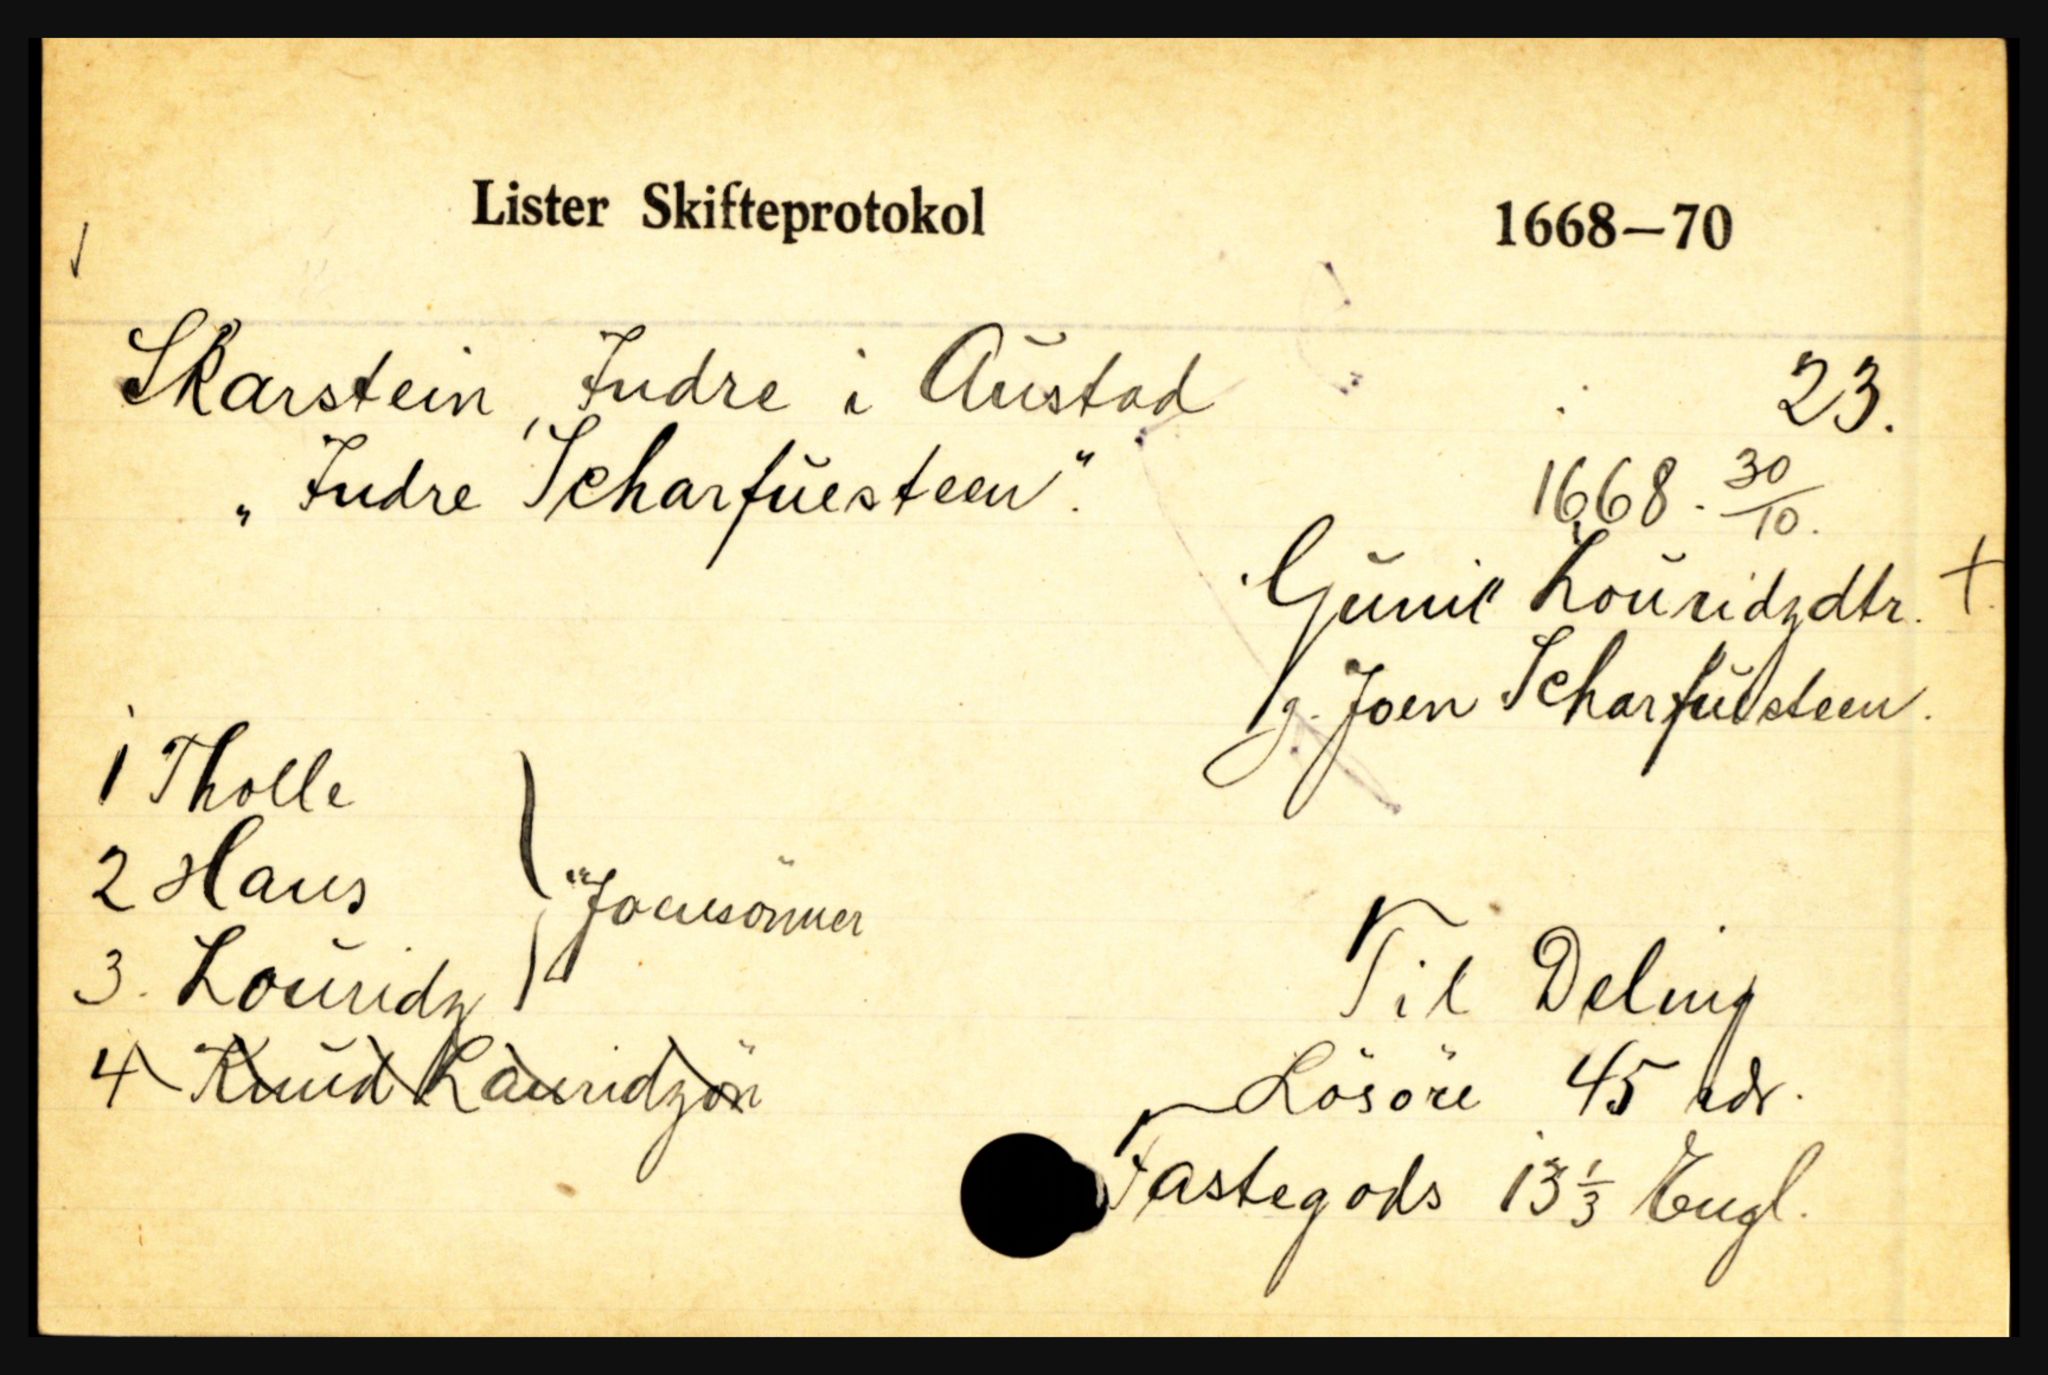 Lister Skifteprotokol 1668—70
Skarstein, Indre i Austad 23.
„Indre Scharfuesteen". 1668. 30/10.
Gunil Louridzdtr. +
g. Joen Scharfuesteen.
1 Tholle
2 Hans
"Joensönner
3. Louridz
Til Deling
4 Knud Lauridzön
Lösöre 45 rdr.
Fastegods 13 1/3 Engl.